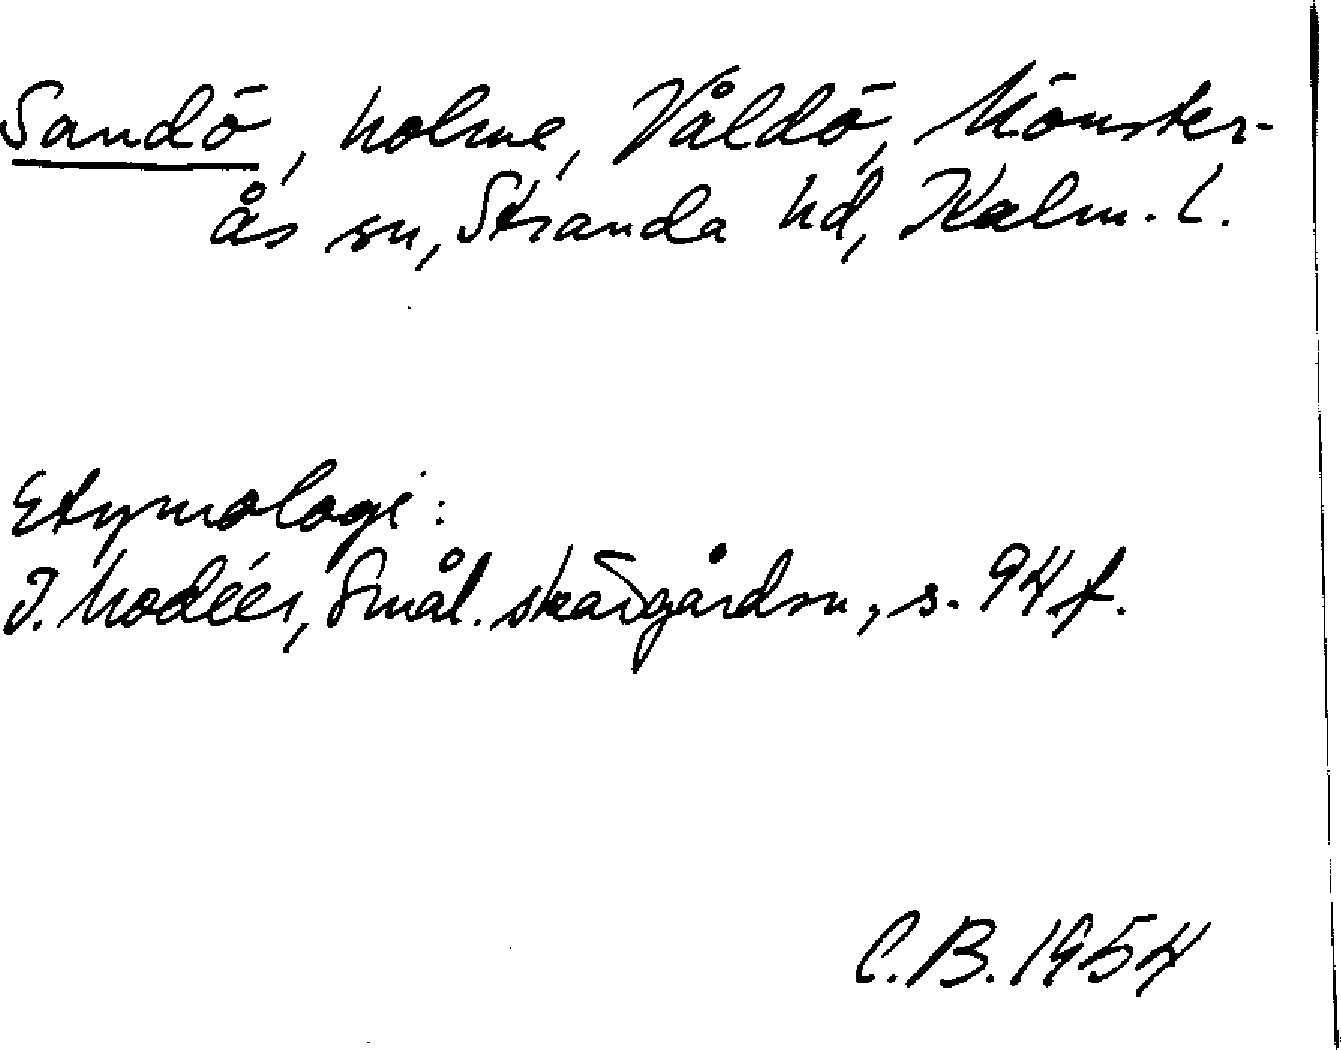 Sandö, holme, Våldö, Mönster-
ås sn, Stranda hd, Kalm. l.
Etymologi:
I. Modéer, Smål. skärgårdsn, s. 94 f.
C.B. 1954